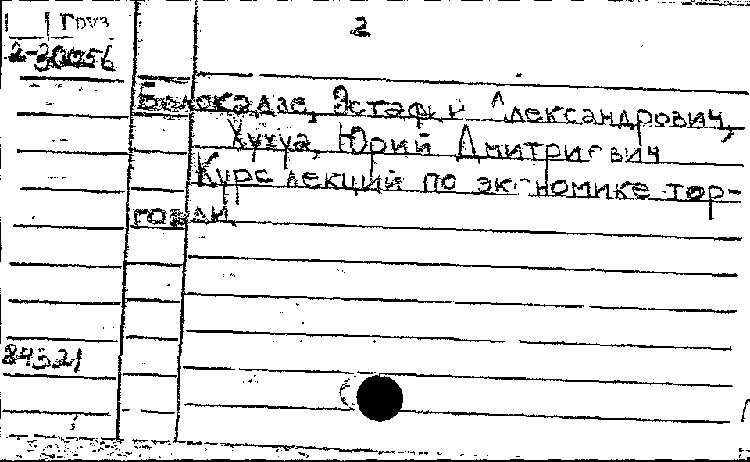 Груз 2
2-30056
Белокадзе, Эстафи Александрович,
Хухуа, Юрий Дмитриевич
Курс лекций по экономике тор-
говли
84321